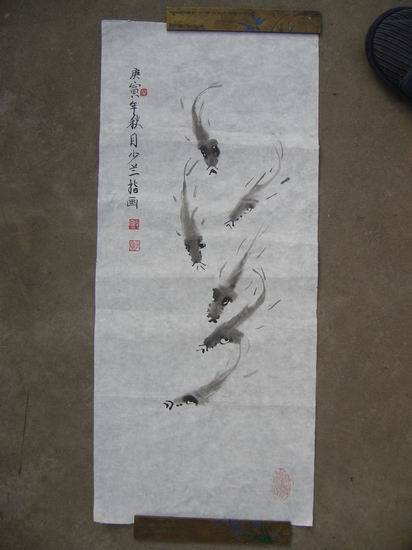 庚寅年秋月少兰指画